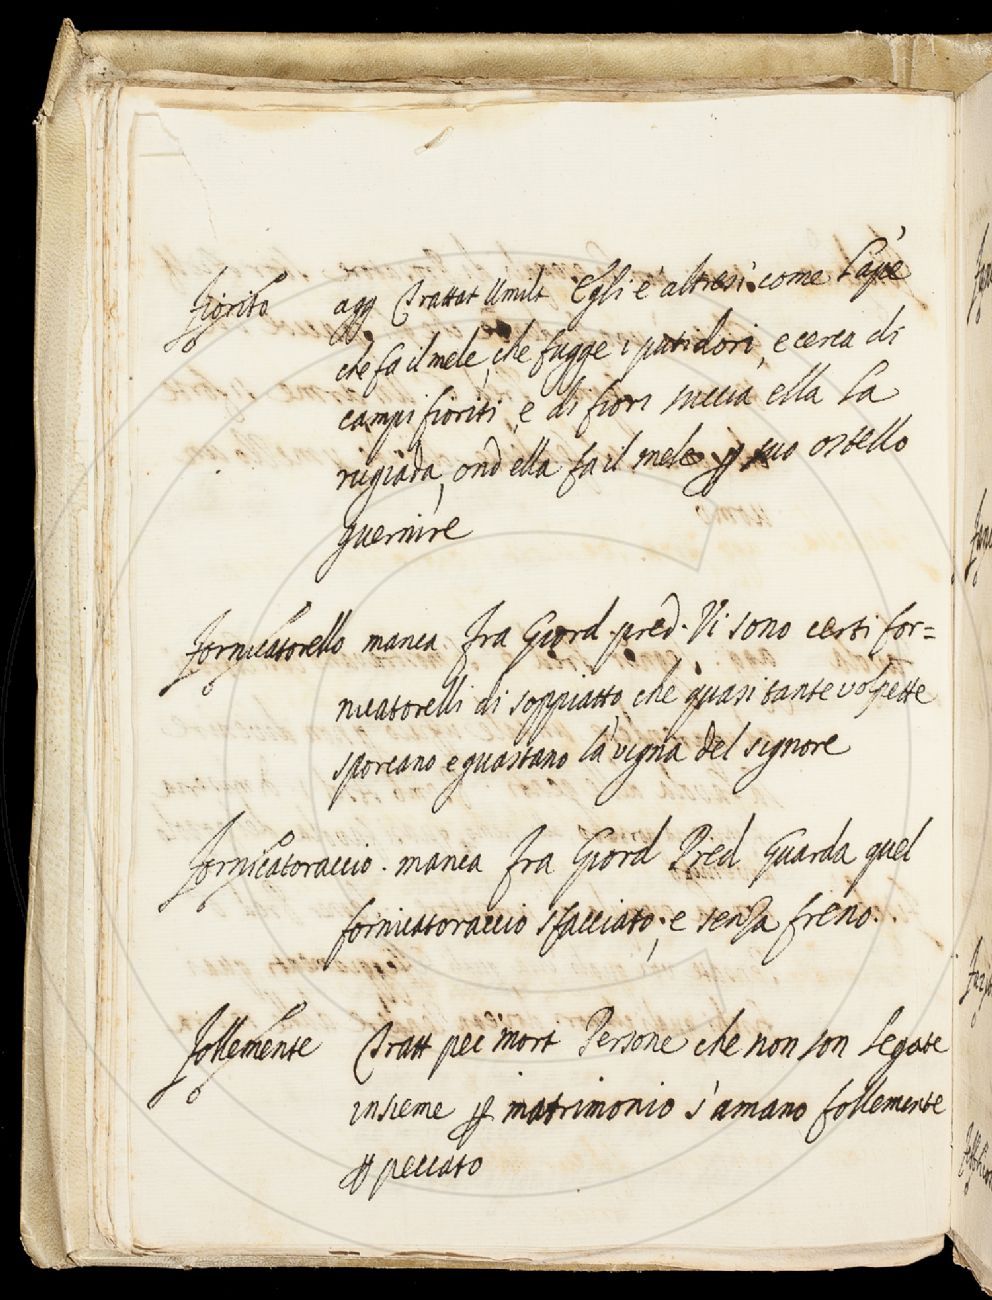 Fiorito agg Trattat Umilt Egli è altresì come l'ape
che fa il mele, che fugge i putidori, e cerca di
campi fioriti, e di fiori succia ella la
rugiada, ond ella fa il mele p suo ostello
guernire
Fornicatorello manca fra Giord. pred. Vi sono certi for=
nicatorelli di soppiatto, che quasi tante volpette
sporcano e guastano la vigna del signore
Fornicatoraccio. manca fra Giord Pred Guarda quel
fornicatoraccio sfacciato, e senza freno.
Follemente Tratt pec mort Persone che non son legate
insieme p matrimonio s'amano follemente
p peccato